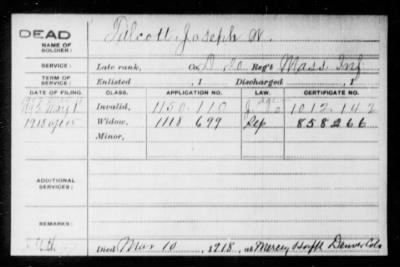 DEAD
NAME OF SOLDIER: Talcott, Joseph W.
SERVICE: Late rank, Co. D, 20 Reg't Mass Inf
TERM OF SERVICE: Enlisted , 1 Discharged , 1
DATE OF FILING. CLASS. APPLICATION NO. LAW. CERTIFICATE NO.
Invalid, 1150.110 1012.142
1918 Widow, 1118 699 858266
Minor,
ADDITIONAL SERVICES:
REMARKS:
Died Mar 10, 1918, at Mercy Denver Colo